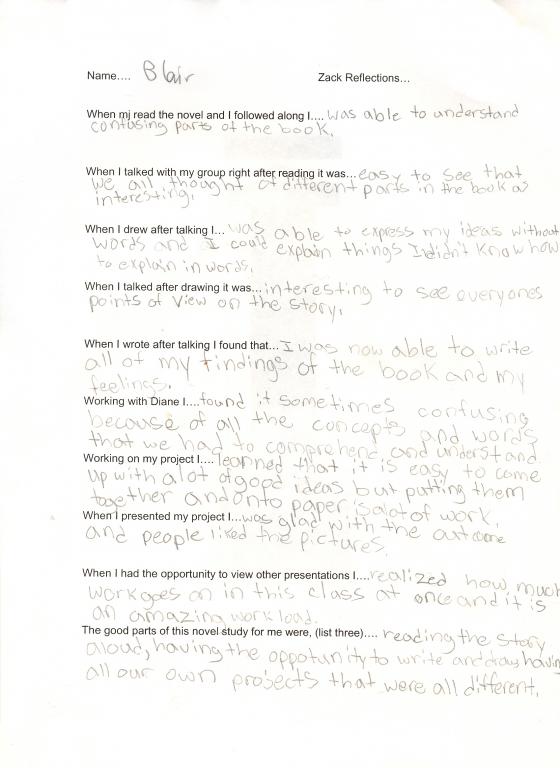 Name.... Blair Zack Reflections...
When mj read the novel and I followed along I.... was able to understand
confusing parts of the book.
When I talked with my group right after reading it was...easy to see that
we all thought of different parts in the book as
interesting.
When I drew after talking I... was able to express my ideas without
words and I could explain things I didn't know how
to explain in words.
When I talked after drawing it was...interesting to see everyones
points of view on the story.
When I wrote after talking I found that...I was now able to write
all of my findings of the book and my
feelings.
Working with Diane I....found it sometimes confusing
because of all the concepts and words
that we had to comprehend and understand
Working on my project I.... learned that it is easy to come
up with alot of good ideas but putting them
together and onto paper is alot of work.
When I presented my project I...was glad with the outcome
and people liked the pictures.
When I had the opportunity to view other presentations I....realized how much
work goes on in this class at once and it is
an amazing work load.
The good parts of this novel study for me were, (list three).... reading the story
aloud, having the oppotunity to write and draw, having
all our own projects that were all different.